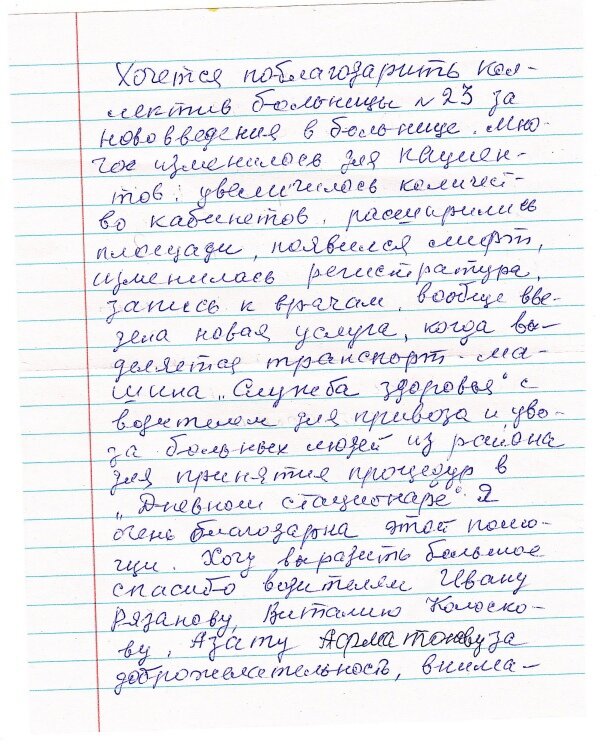 Хочется поблагодарить кол-
лектив больницы № 23 за
нововведения в больнице. Мно-
гое изменилось для пациен-
тов: увеличилось количест-
во кабинетов, расширились
площади, появился лифт,
изменилась регистратура,
запись к врачам, вообще вве-
дена новая услуга, когда вы-
деляется транспорт-ма-
шина „Служба здоровья" с
водителем для привоза и уво-
за больных людей из района
для принятия процедур в
„Дневном стационаре". Я
очень благодарна этой помо-
щи. Хочу выразить большое
спасибо водителям Ивану
Рязанову, Виталию Колоско-
ву, Азату за
доброжелательность, внима-